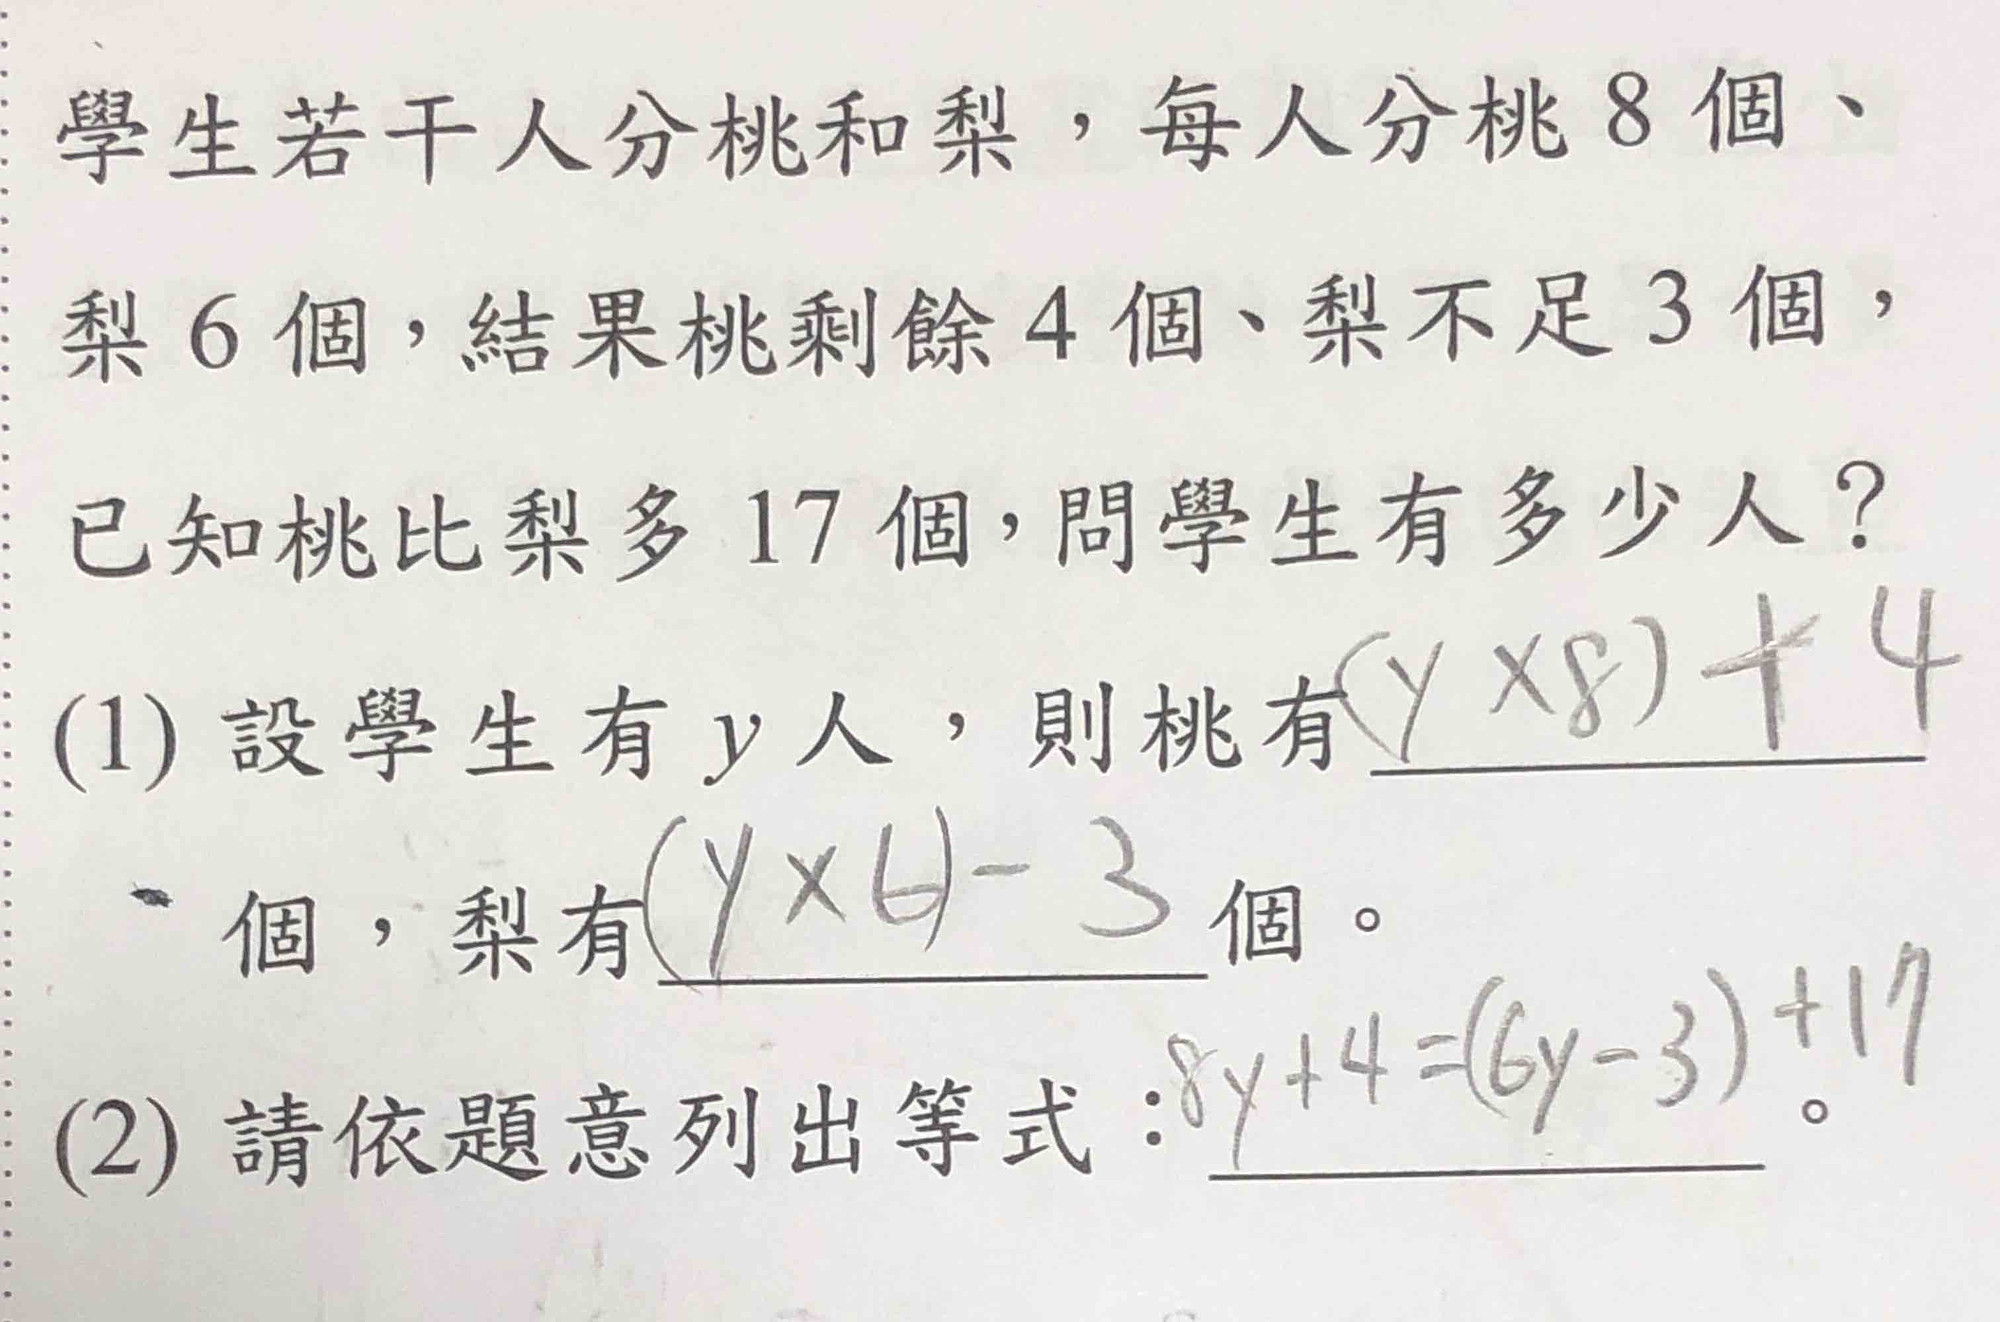 學生若干人分桃和梨，每人分桃 8 個、
梨 6 個，結果桃剩餘 4 個、梨不足 3 個，
已知桃比梨多 17 個，問學生有多少人？
(1) 設學生有 y 人，則桃有(y×8)+4
個，梨有(y×6)-3個。
(2) 請依題意列出等式：8y+4=(6y-3)+17。